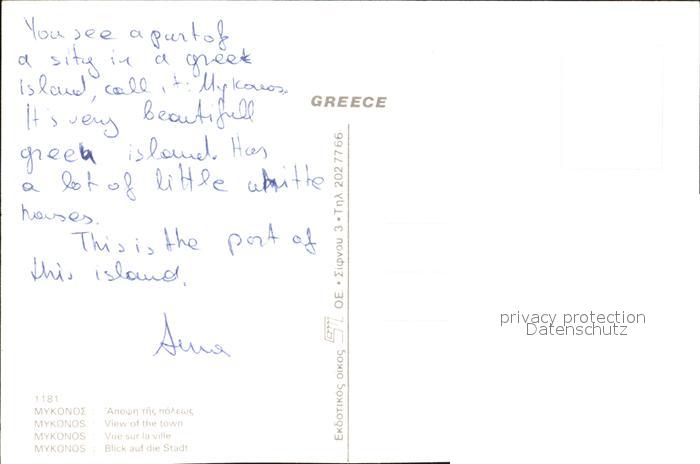 You see a part of
a sity in a greek
island, call it: Mykonos.
It's very beautifull
greek island. Has
a lot of little whitte
houses.
This is the port of
this island.
Anna
GREECE
Εκδοτικός οικος ΟΕ • Σίφνου 3 • Τηλ 2027766
privacy protection
Datenschutz
1181
ΜΥΚΟΝΟΣ : Ἄποψη τῆς πόλεως
MYKONOS : View of the town
MYKONOS : Vue sur la ville
MYKONOS : Blick auf die Stadt